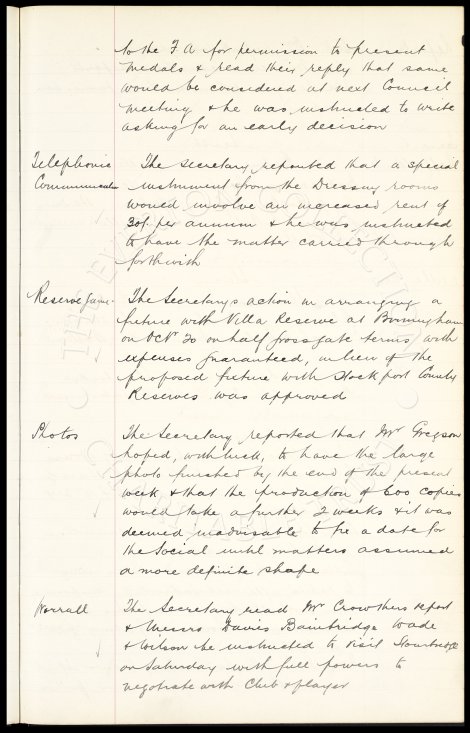 to the F A for permission to present
medals & read their reply that same
would be considered at next Council
meeting & he was instructed to write
asking for an early decision
Telephonic
Communicatn
The Secretary reported that a special
instrument from the Dressing rooms
would involve an increased rent of
30/- per annum & he was instructed
to have the matter carried through
forthwith
Reserve Game
The Secretarys action in arranging a
fixture with Villa Reserve at Birmingham
on Octr 20 on half gross gate terms, with
expenses guaranteed, in lieu of the
proposed fixture with Stockport County
Reserves was approved
Photos
The Secretary reported that Mr Gregson
hoped, with luck, to have the large
photo finished by the end of the present
week, & that the production of 600 copies
would take a further 2 weeks & it was
deemed inadvisable to fix a date for
the Social until matters assumed
a more definite shape
Worrall
The Secretary read Mr Crowthers report
& Messrs Davis Bainbridge Wade
& Wilson be instructed to visit Stourbridge
on Saturday with full powers to
negotiate with Club & player